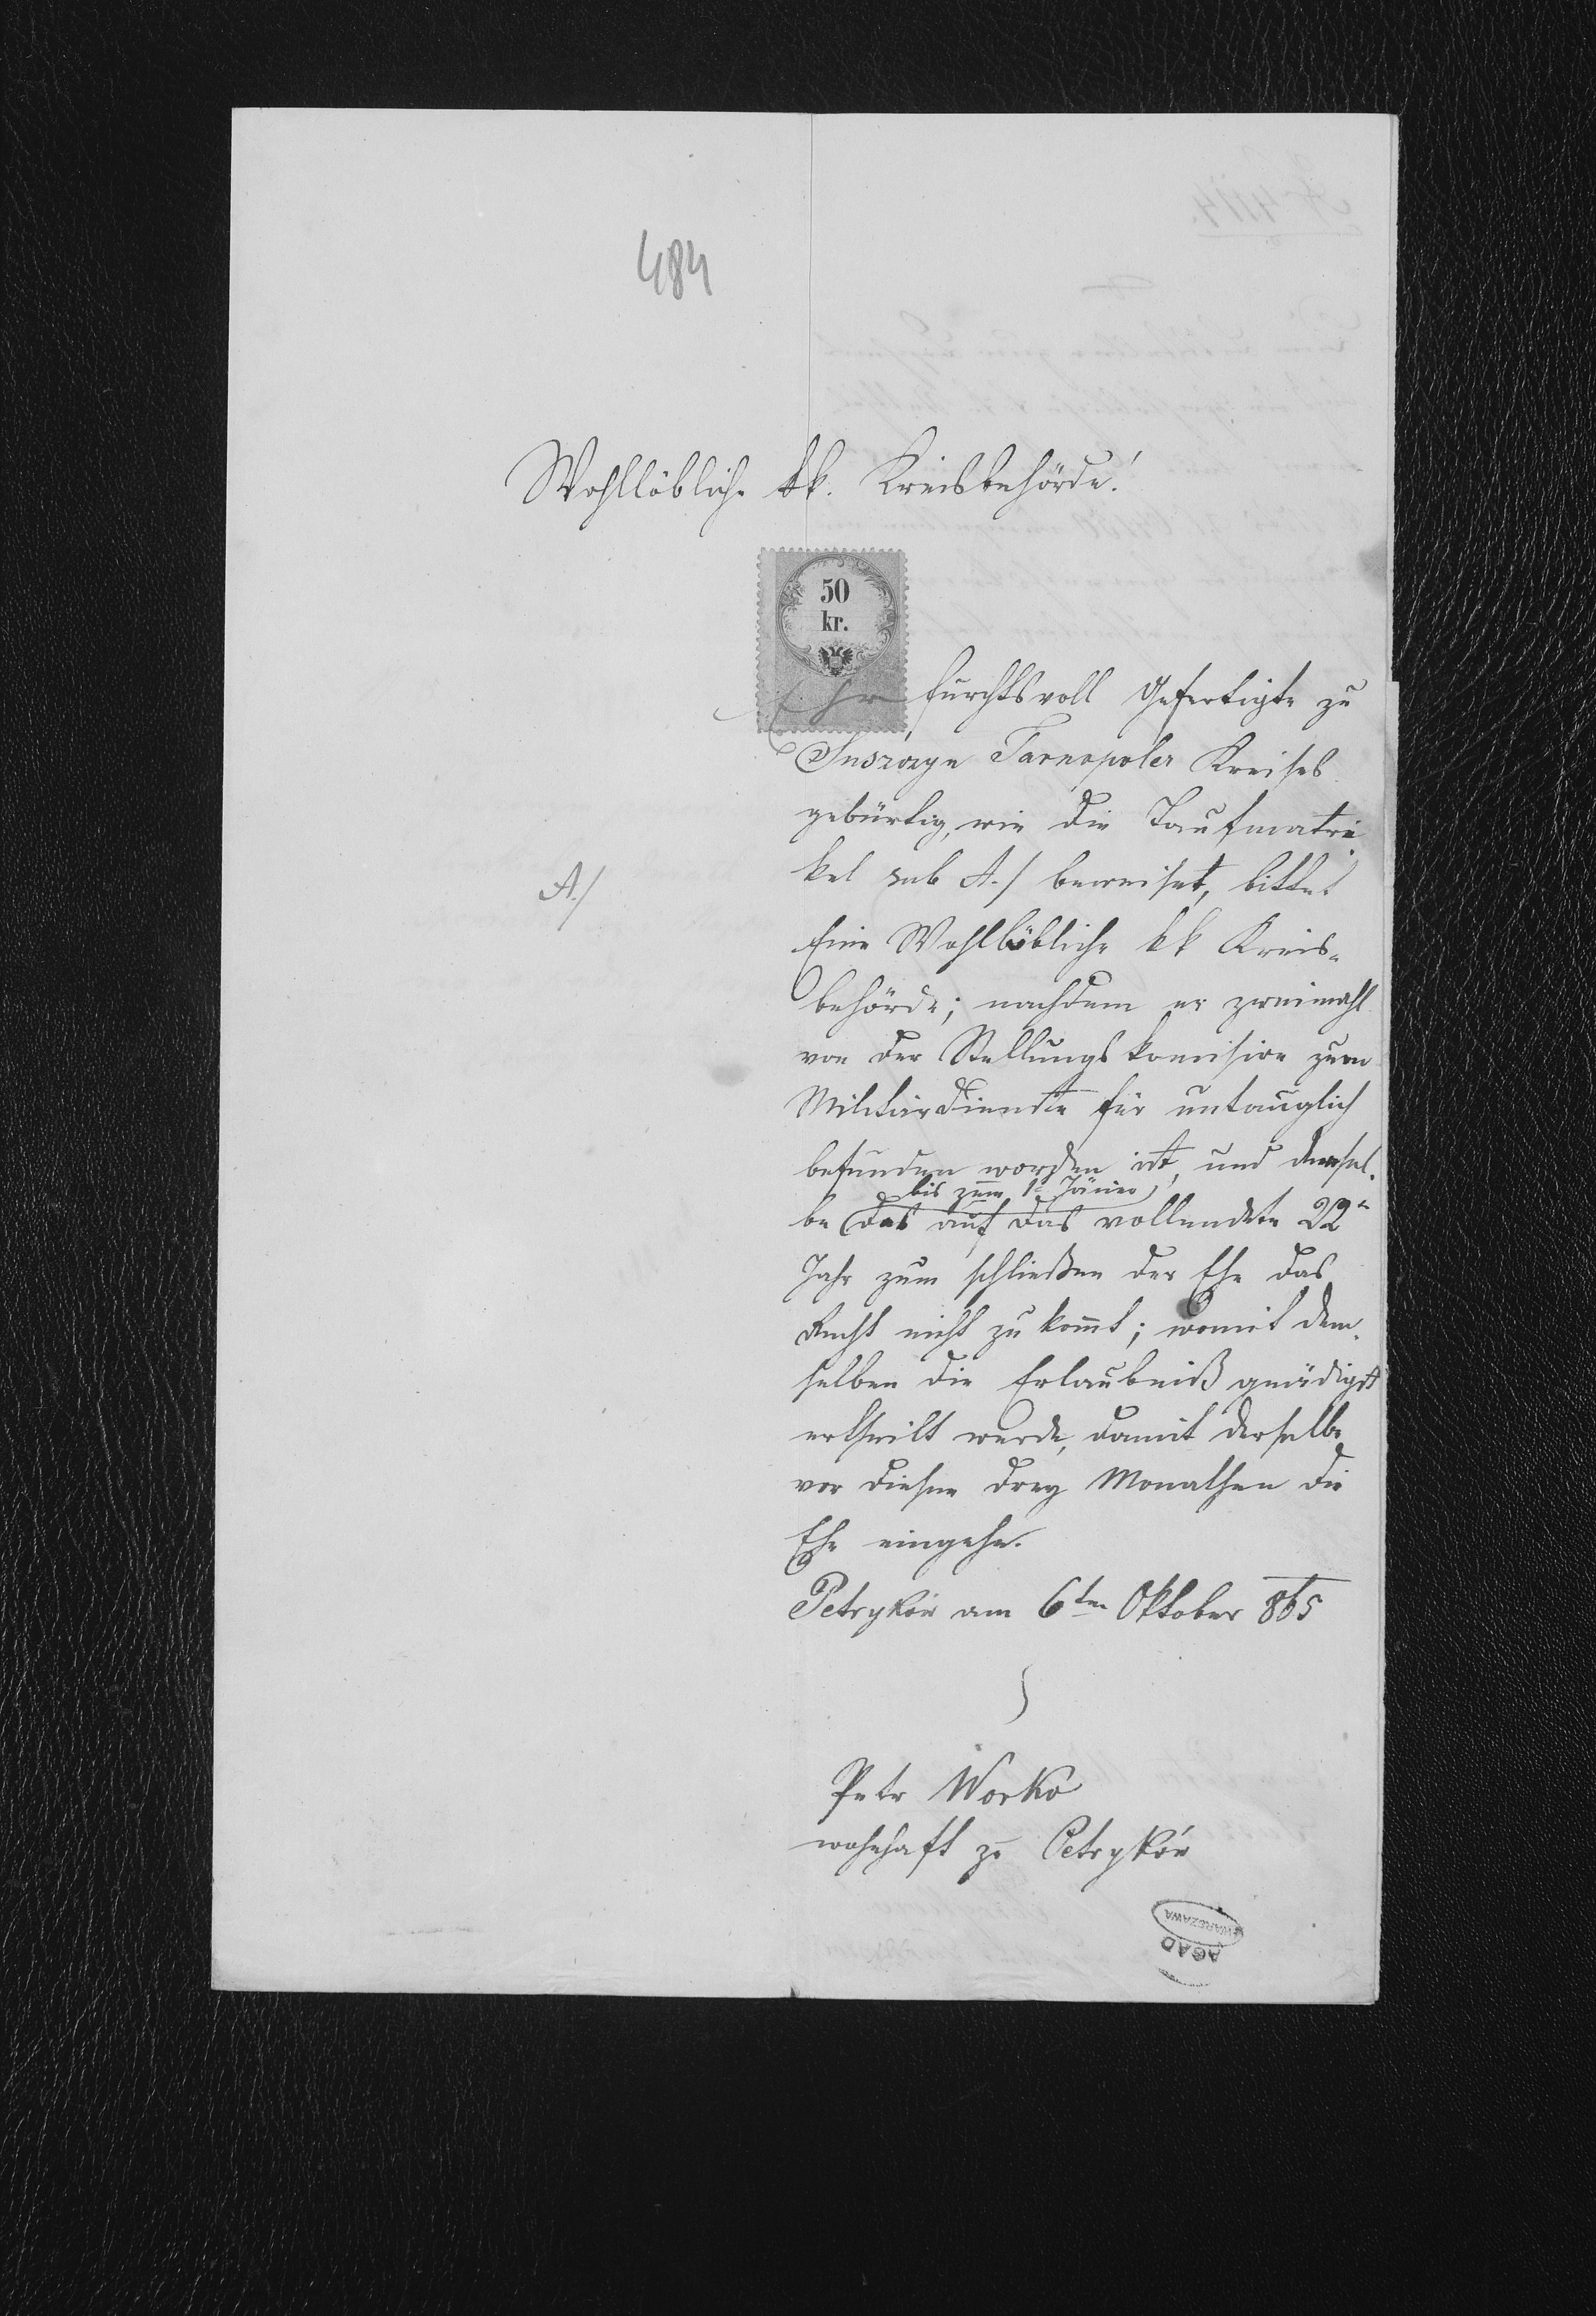 484
Wohllöbliche kk. Kreisbehörde!
50
kr.
Ehrfurchtsvoll Gefertigte zu
Tarnopoler Kreises
gebürtig, wie die Taufmatri
kel sub A./ beweiset, bittet
A./
Eine Wohllöbliche kk Kreis=
behörde; nachdem er zweimahl
von der Stellungskomision zum
Militärdienste für untauglich
befunden worden ist, und demsel=
bis zum 1t Jäner
be das auf das vollendete 22te
Jahr zum schließen der Ehe das
Recht nicht zu kom̄t; womit dem=
selben die Erlaubniß gnädigst
ertheilt werde, damit derselbe
vor diesen drey Monathen die
Ehe eingehe.
Petryków am 6ten Oktober 865
Petr Worko
wohnhaft zu Petryków
AGAD
WARSZAWA